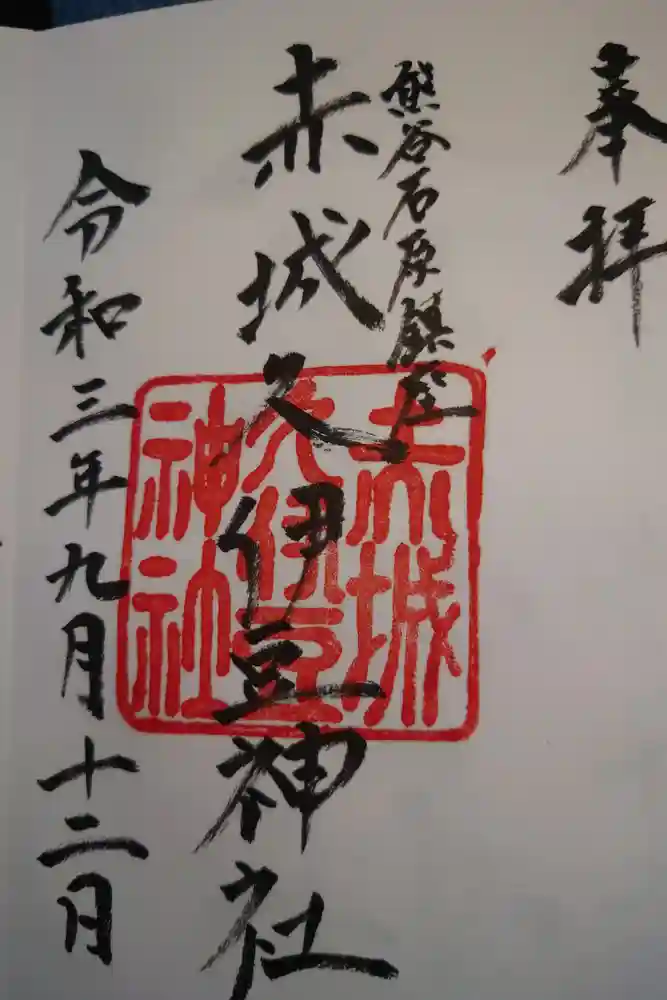 奉拝
熊谷石原鎮座
赤城久伊豆神社
赤城
久伊豆
神社
令和三年九月十二月